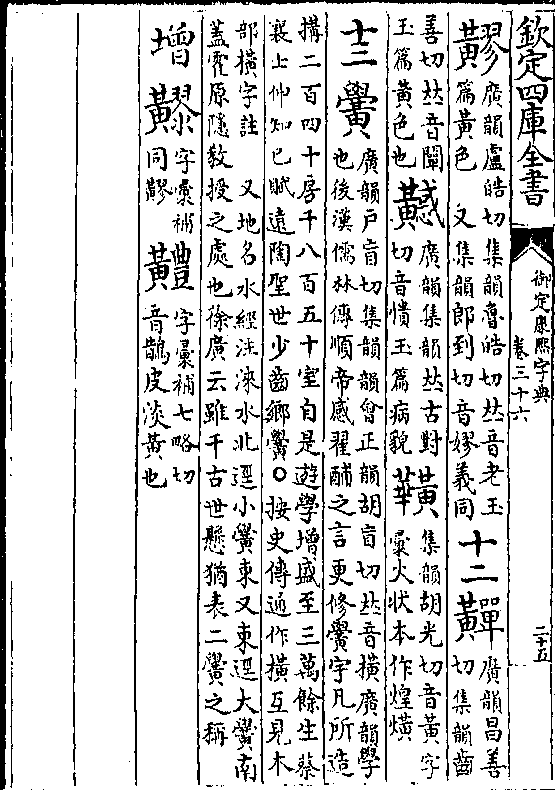 欽定四庫全書
御定康熙字典
卷三十六
二十五
廣韻盧皓切集韻魯皓切𠀤音老玉
篇黃色 又集韻郎到切音嫪義同
十二
廣韻昌善
切集韻齒
善切𠀤音闡
玉篇黃色也
廣韻集韻𠀤古對
切音憒玉篇病貌
集韻胡光切音黃字
彙火狀本作煌熿
十三 黌
廣韻戶盲切集韻韻會正韻胡盲切𠀤音橫廣韻學
也後漢儒林傳順帝感翟酺之言更修黌宇凡所造
搆二百四十房千八百五十室自是遊學增盛至三萬餘生蔡
襄上仲知已賦遠陶聖世少齒鄉黌○按史傳通作橫互見木
部橫字註 又地名水經注淶水北逕小黌東又東逕大黌南
蓋霍原隱敎授之處也徐廣云雖千古世懸猶表二黌之稱
增
字彙補
同
字彙補七略切
音鵲皮淡黃也